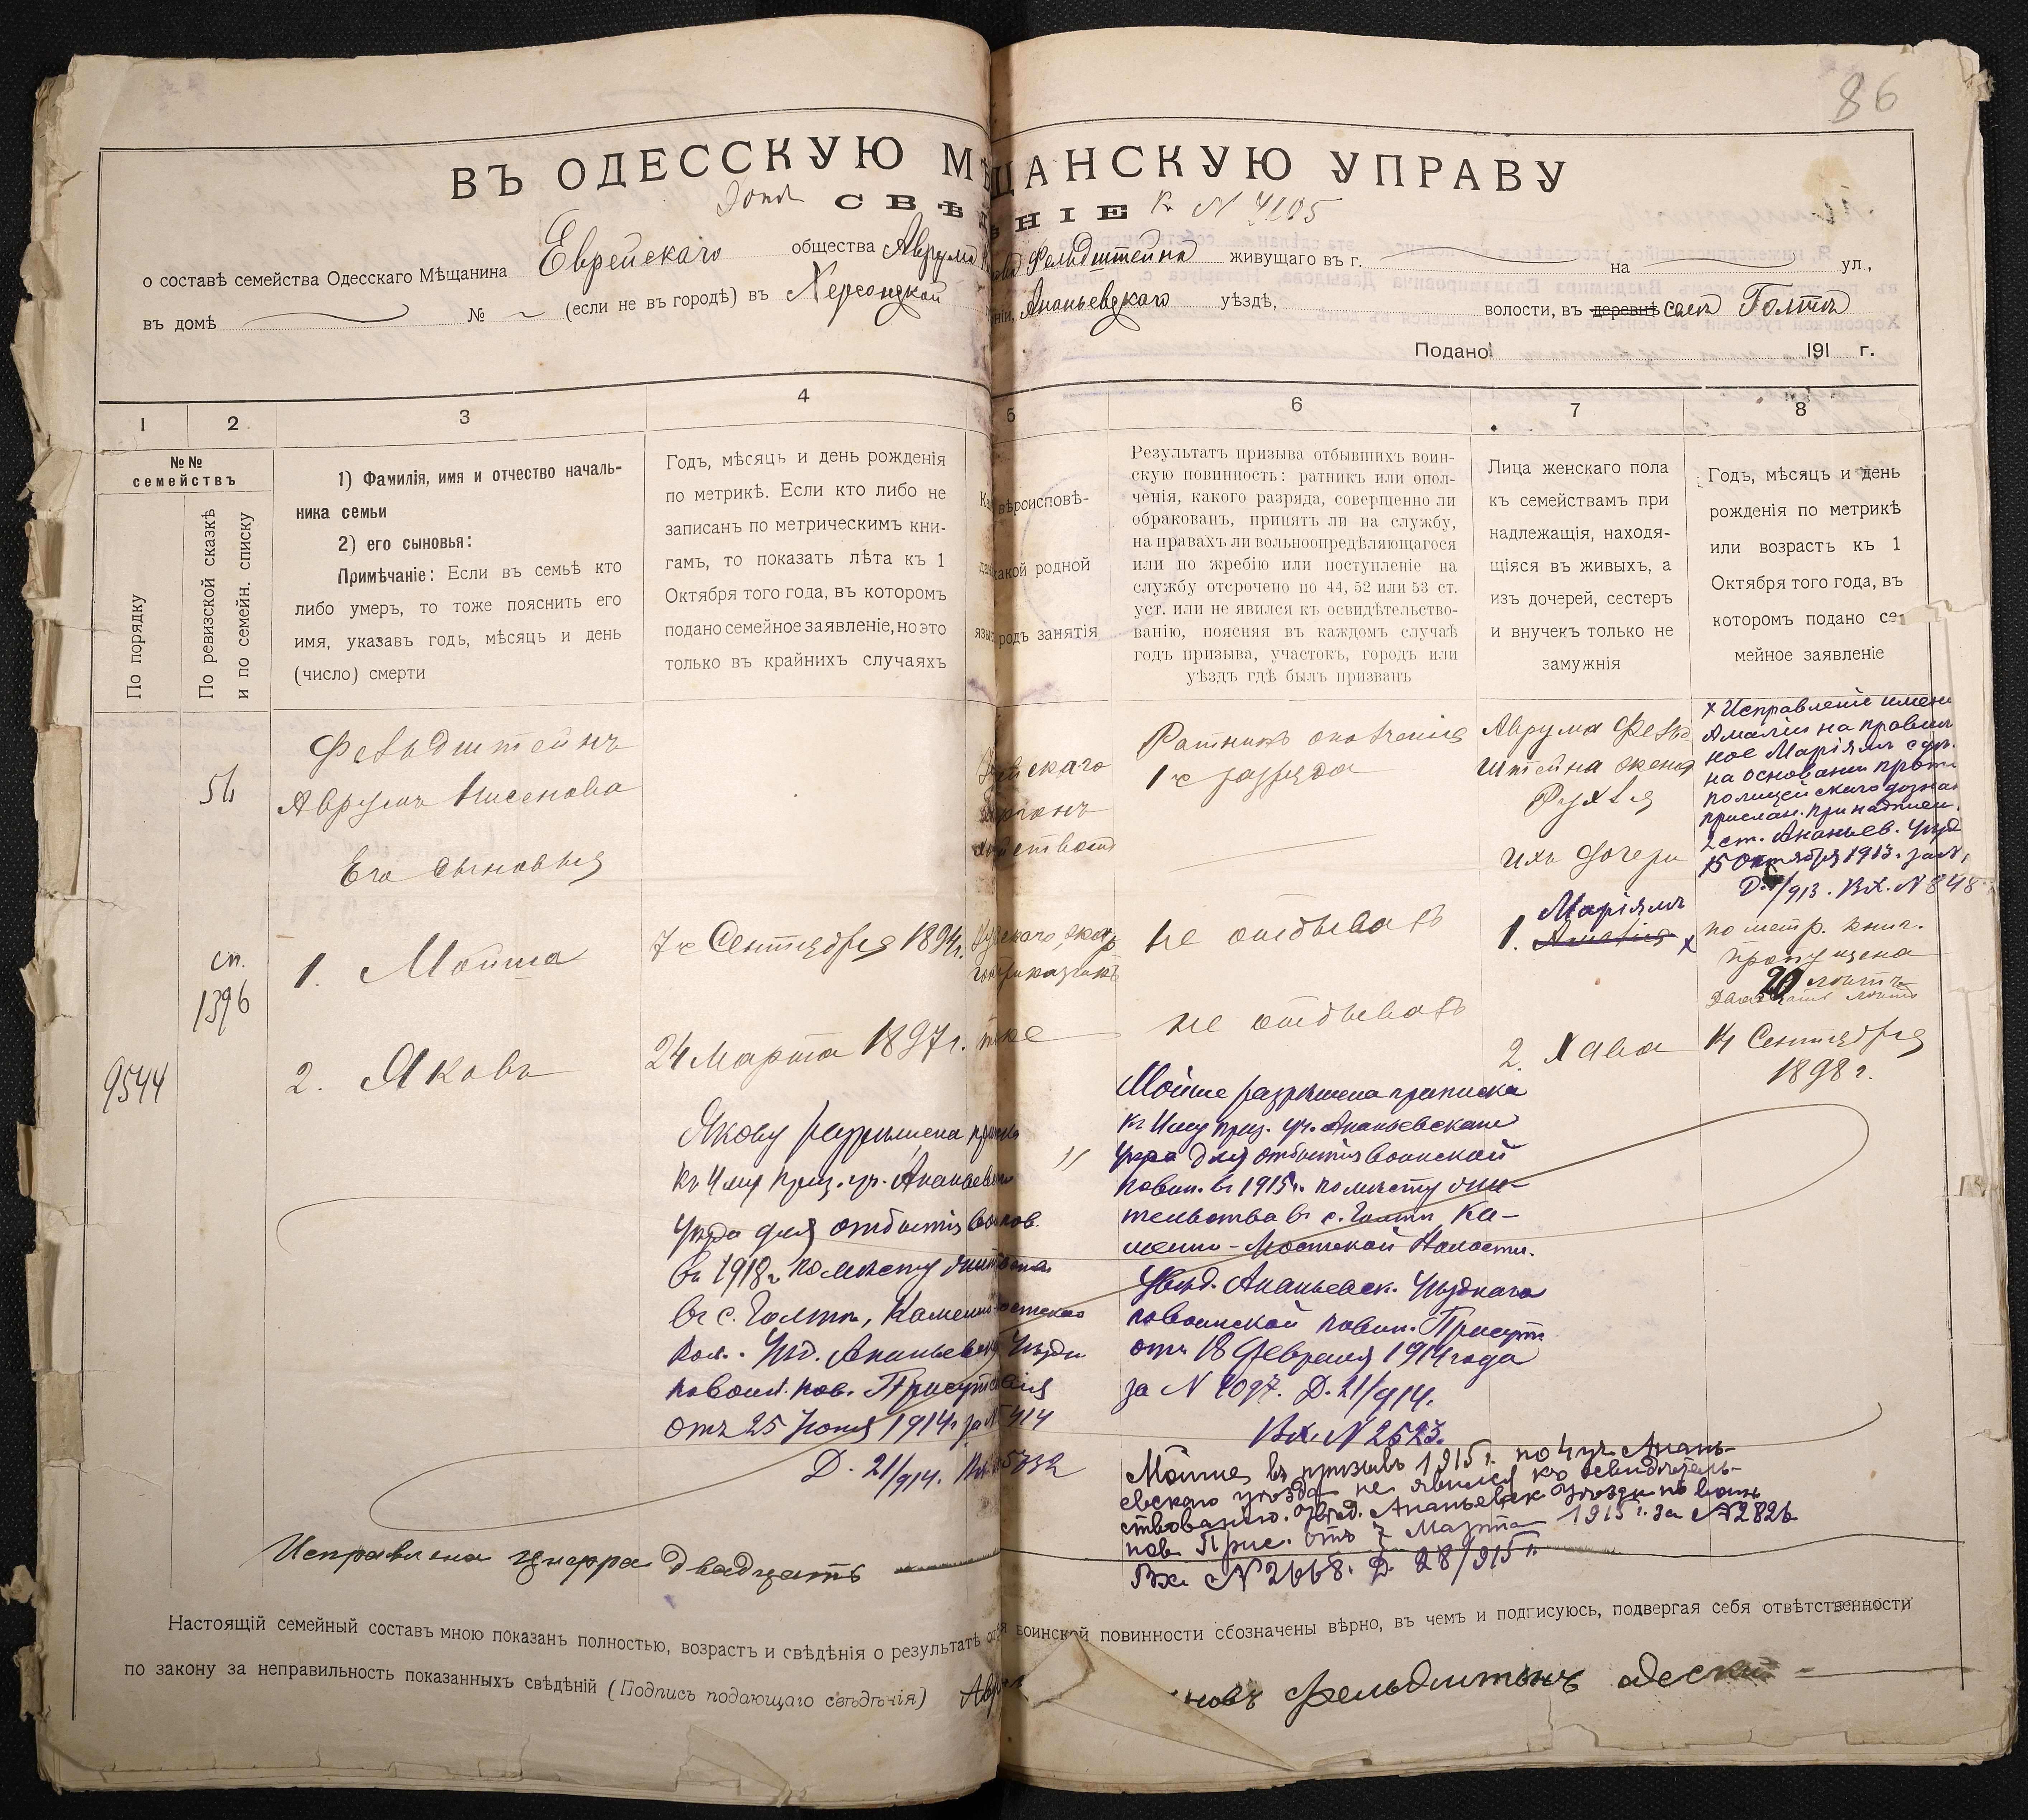 86
ВЪ ОДЕССКУЮ МѢЩАНСКУЮ УПРАВУ
СВѢДѢНІЕ к N 4105
о составѣ семейства Одесскаго Мѣщанина Еврейскаго общества Аврума Фельдштейна живущаго въ г. на ул.,
въ домѣ № (если не въ городѣ) въ Херсонской Ананьевскаго уѣздѣ, волости, въ деревнѣ Голтѣ
Подано 191 г.
1 2 3 4 5 6 7 8
№№ семействъ
По порядку
По ревизской сказкѣ
и по семейн. списку
1) Фамилія, имя и отчество началь-
ника семьи
2) его сыновья:
Примѣчаніе: Если въ семьѣ кто
либо умеръ, то тоже пояснить его
имя, указавъ годъ, мѣсяцъ и день
(число) смерти
Годъ, мѣсяцъ и день рожденія
по метрикѣ. Если кто либо не
записанъ по метрическимъ кни-
гамъ, то показать лѣта къ 1
Октября того года, въ которомъ
подано семейное заявленіе, но это
только въ крайнихъ случаяхъ
вѣроисповѣ-
какой родной
родъ занятія
Результатъ призыва отбывшихъ воин-
скую повинность: ратникъ или опол-
ченія, какого разряда, совершенно ли
обракованъ, принятъ ли на службу,
на правахъ ли вольноопредѣляющагося
или по жребію или поступленіе на
службу отсрочено по 44, 52 или 53 ст.
уст. или не явился къ освидѣтельство-
ванію, поясняя въ каждомъ случаѣ
годъ призыва, участокъ, городъ или
уѣздъ гдѣ былъ призванъ
Лица женскаго пола
къ семействамъ при
надлежащія, находя-
щіяся въ живыхъ, а
изъ дочерей, сестеръ
и внучекъ только не
замужнія
Годъ, мѣсяцъ и день
рожденія по метрикѣ
или возрастъ къ 1
Октября того года, въ
которомъ подано се-
мейное заявленіе
9544
сп.
1396
Фельдштейнъ
Аврумъ Нисеновъ
Его сыновья
1. Мойша
2. Яковъ
7го Сентября 1894г.
24 Марта 1897г.
Якову разрѣшена
къ 4му приз. уч. Ананьевск
уѣзда для отбытія
въ 1918г по мѣсту
въ с. Голтѣ, Каменно-Мостской
Вол. Ув. Ананьевск Уѣздн
повоин. пов. Присутствія
отъ 25 Іюня 1914г. за N 414
Д. 21/914.
тоже
Ратникъ ополченія
1го разряда
не отбывалъ
не отбывалъ
Мойше разрѣшена приписка
къ 4му приз. уч. Ананьевскаго
уѣзда для отбытія воинской
повин. въ 1915г. по мѣсту жи-
тельства въ с. Голтѣ Ка-
менно-Мостской Волости.
Увѣд. Ананьевск. Уѣзднаго
повоинской повин. Присутст.
отъ 18 Февраля 1914 года
за N 1097. Д. 21/914.
Вх. N 2523.
Мойше въ призывъ 1915г. по 4 уч. Анань-
евскаго уѣзда не явился къ освидѣтель-
ствованію. Увѣд. Ананьевск Уѣздн по воин
пов. Прис. отъ 7 Марта 1915г. за N2826
Вх. N 2668. Д. 28/915г.
Аврума Фельд
штейна жена
Рухля
Ихъ дочери
Маріямъ
1. Амалія x
2. Хава
x Исправленіе имени
Амаліи на правиль
ное Маріямъ
на основаніи
полицейскаго дознан
прислан. при надписи
2 ст. Ананьев. Уѣзд
15 Октября 1913. за N
Д. /913. Вх. N 848
по метр. книг.
пропущена
20 лѣтъ
Двадцать лѣтъ
14 Сентября
1898г.
Исправлена цифра двадцать
Настоящій семейный составъ мною показанъ полностью, возрастъ и свѣдѣнія о результатѣ воинской повинности обозначены вѣрно, въ чемъ и подписуюсь, подвергая себя отвѣтственности
по закону за неправильность показанныхъ свѣдѣній (Подпись подающаго свѣдѣнія)
Фельдштейнъ